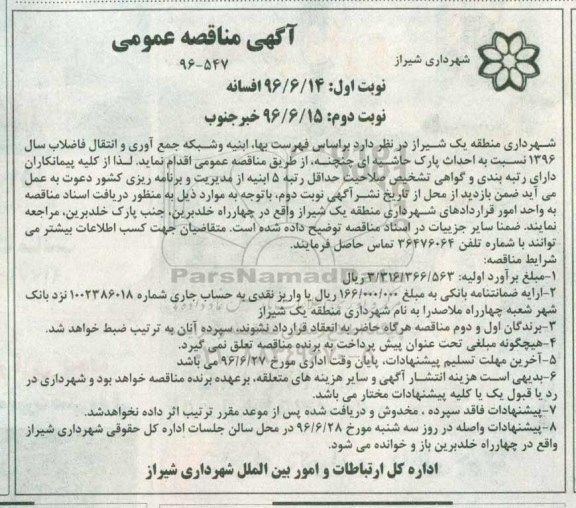 آگهی مناقصه عمومی
شهرداری شیراز
۹۶-۵۴۷
نوبت اول: ۹۶/۶/۱۴ افسانه
نوبت دوم: ۹۶/۶/۱۵ خبرجنوب
شهرداری منطقه یک شیراز در نظر دارد براساس فهرست بها، ابنیه وشبکه جمع آوری و انتقال فاضلاب سال
۱۳۹۶ نسبت به احداث پارک حاشیه ای چنچنه، از طریق مناقصه عمومی اقدام نماید. لذا از کلیه پیمانکاران
دارای رتبه بندی و گواهی تشخیص صلاحیت حداقل رتبه ۵ ابنیه از مدیریت و برنامه ریزی کشور دعوت به عمل
می آید ضمن بازدید از محل از تاریخ نشر آگهی نوبت دوم، باتوجه به موارد ذیل به منظور دریافت اسناد مناقصه
به واحد امور قراردادهای شهرداری منطقه یک شیراز واقع در چهارراه خلدبرین، جنب پارک خلدبرین، مراجعه
نمایند. ضمنا سایر جزییات در اسناد مناقصه توضیح داده شده است. متقاضیان جهت کسب اطلاعات بیشتر می
توانند با شماره تلفن ۳۶۴۷۶۰۶۴ تماس حاصل فرمایند.
شرایط مناقصه:
۱-مبلغ برآورد اولیه: ۳/۳۱۶/۳۶۶/۵۶۳ ریال
ParsNamadData
۲-ارایه ضمانتنامه بانکی به مبلغ ۱۶۶/۰۰۰/۰۰۰ ریال یا واریز نقدی به حساب جاری شماره ۱۰۰۲۳۸۶۰۱۸ نزد بانک
شهر شعبه چهارراه ملاصدرا به نام شهرداری منطقه یک شیراز
۳-برندگان اول و دوم مناقصه هرگاه حاضر به انعقاد قرارداد نشوند، سپرده آنان به ترتیب ضبط خواهد شد.
۴-هیچگونه مبلغی تحت عنوان پیش پرداخت به برنده مناقصه تعلق نمی گیرد.
۵-آخرین مهلت تسلیم پیشنهادات، پایان وقت اداری مورخ ۹۶/۶/۲۷ می باشد
۶-بدیهی است هزینه انتشار آگهی و سایر هزینه های متعلقه، برعهده برنده مناقصه خواهد بود و شهرداری در
رد یا قبول یک یا کلیه پیشنهادات مختار می باشد.
۷-پیشنهادات فاقد سپرده ، مخدوش و دریافت شده پس از موعد مقرر ترتیب اثر داده نخواهدشد.
۸-پیشنهادات واصله در روز سه شنبه مورخ ۹۶/۶/۲۸ در محل سالن جلسات اداره کل حقوقی شهرداری شیراز
واقع در چهارراه خلدبرین باز و خوانده می شود.
اداره کل ارتباطات و امور بین الملل شهرداری شیراز